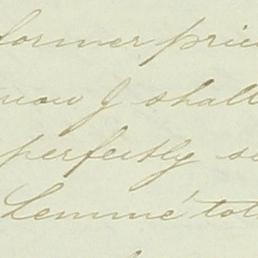 former pric
now I shall
perfectly s
Lemme' tol